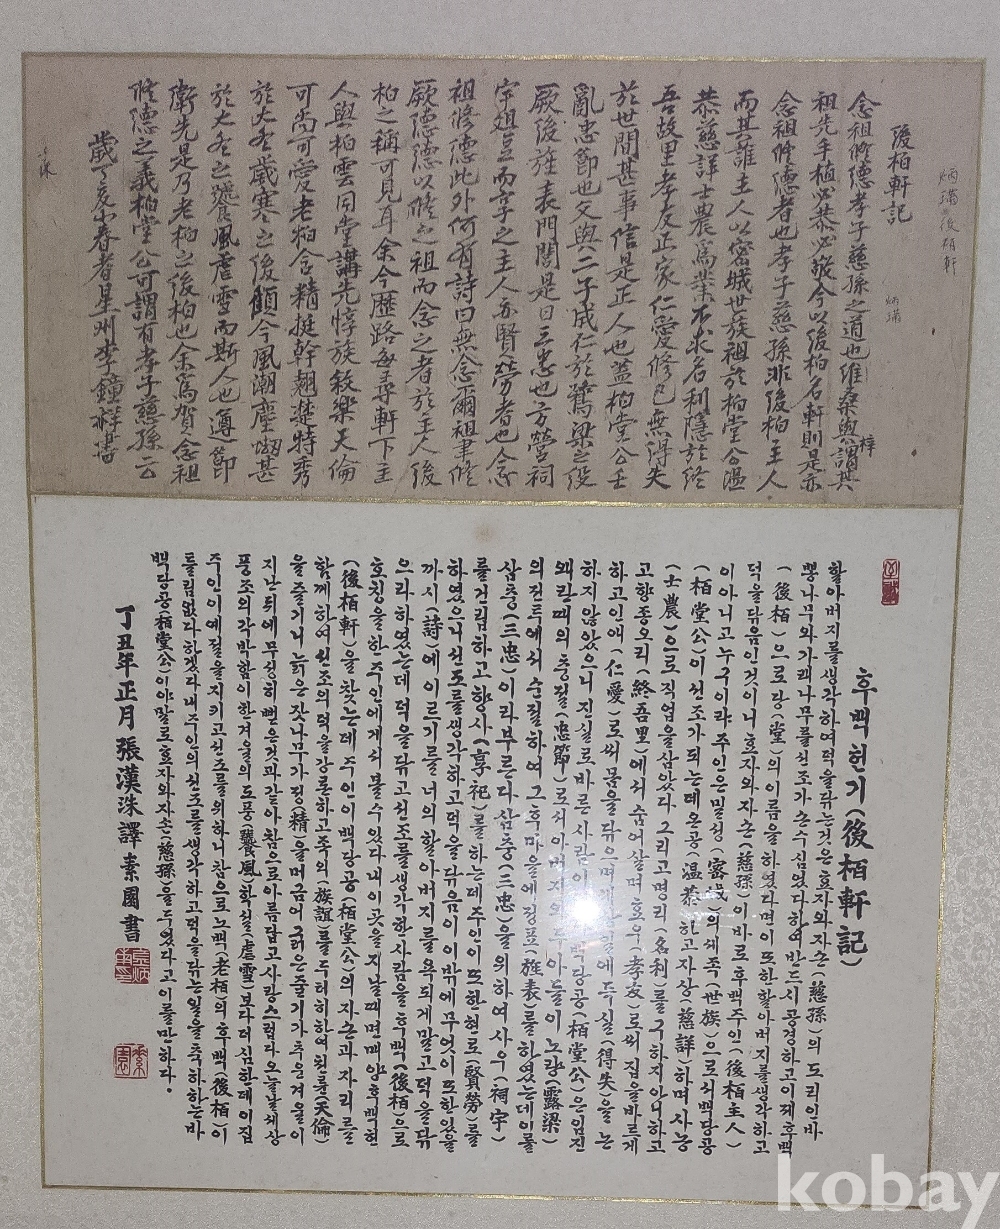 後栢軒記
念祖修德孝子慈孫之道也維桑與梓謂其
祖先手植必恭必敬今以後栢名軒則是亦
念祖修德者也孝子慈孫非後栢主人
而其誰主人以密城世族祖於栢堂公溫
恭慈詳士農爲業不求名利隱於終
吾故里孝友正家仁愛修己無得失
於世間甚事信是正人也蓋栢堂公壬
亂忠節也父與二子成仁於鷺梁之役
厥後旌表門閭是曰三忠也方營祠
宇俎豆而享之主人亦賢勞者也念
祖修德此外何有詩曰無念爾祖聿修
厥德德以修之祖而念之者於主人後
栢之稱可見耳余今歷路每尋軒下主
人與栢雲同堂講先惇族敘樂天倫
可尚可愛老栢含精挺幹翹楚特秀
於大冬歲寒之後顧今風潮塵甚
於大冬之饕風虐雪而斯人也遵節
衛先是乃老栢之後栢也余篤賀念祖
修德之義栢堂公可謂有孝子慈孫云
歲丁亥小春者星州李鐘祥書
후백헌기(後栢軒記)
할아버지를생각하여덕을닦는것은효자와자손(慈孫)의도리인바
뽕나무와가래나무를선조가손수심었다하여반드시공경하고이제후백
(後栢)으로당(堂)의이름을하였다며이또한할아버지를생각하고
덕을닦음인것이니효자와자손(慈孫)이바로후백주인(後栢主人)
이아니고누구이랴주인은밀성(密城)의세족(世族)으로서백당공
(栢堂公)이선조가되는데온공(溫恭)하고자상(慈詳)하며사농
(士農)으로직업을삼았다그리고명리(名利)를구하지아니하고
고향종오리(終吾里)에서숨어살며효우(孝友)로써집을바르게
하고인애(仁愛)로써몸을닦으며세간일에득실(得失)을논
하지않았으니진실로바른사람이백당공(栢堂公)은임진
왜란때의충절(忠節)로서아버지와두아들이노량(露梁)
의전투에서순절하여그후마을에정표(旌表)를하였는데이를
삼충(三忠)이라부른다삼충(三忠)을위하여사우(祠宇)
를건립하고향사(享祀)를하는데주인이또한현로(賢勞)를
하였으니선도를생각하고덕을닦음이이밖에무엇이또한있을
까시(詩)에이르기를너의할아버지를욕되게말고덕을닦
으라하였는데덕을닦고선조를생각한사람을후백(後栢)으로
호칭을한주인에게서볼수있다내이곳을지날때면매양후백헌
(後栢軒)을찾는데주인이백당공(栢堂公)의자손과자리를
함께하여선조의덕을강론하고족의(族誼)를두터히하여천륜(天倫)
을즐기니늙은잣나무가정(精)을머금어굵은줄기가추운겨울이
지난뒤에무성히뻗은것과같아참으로아름답고사랑스럽다오늘날세상
풍조의각박함이한겨울의도풍(饕風)학설(虐雪)보다더심한데이집
주인이예절을지키고선조를위하니참으로노백(老栢)의후백(後栢)이
틀림없다하겠다내주인의선조를생각하고덕을닦는일을축하하는바
백당공(栢堂公)이야말로효자와자손(慈孫)을두었다고이를만하다.
丁丑年正月 張漢洙譯 素園書
kobay